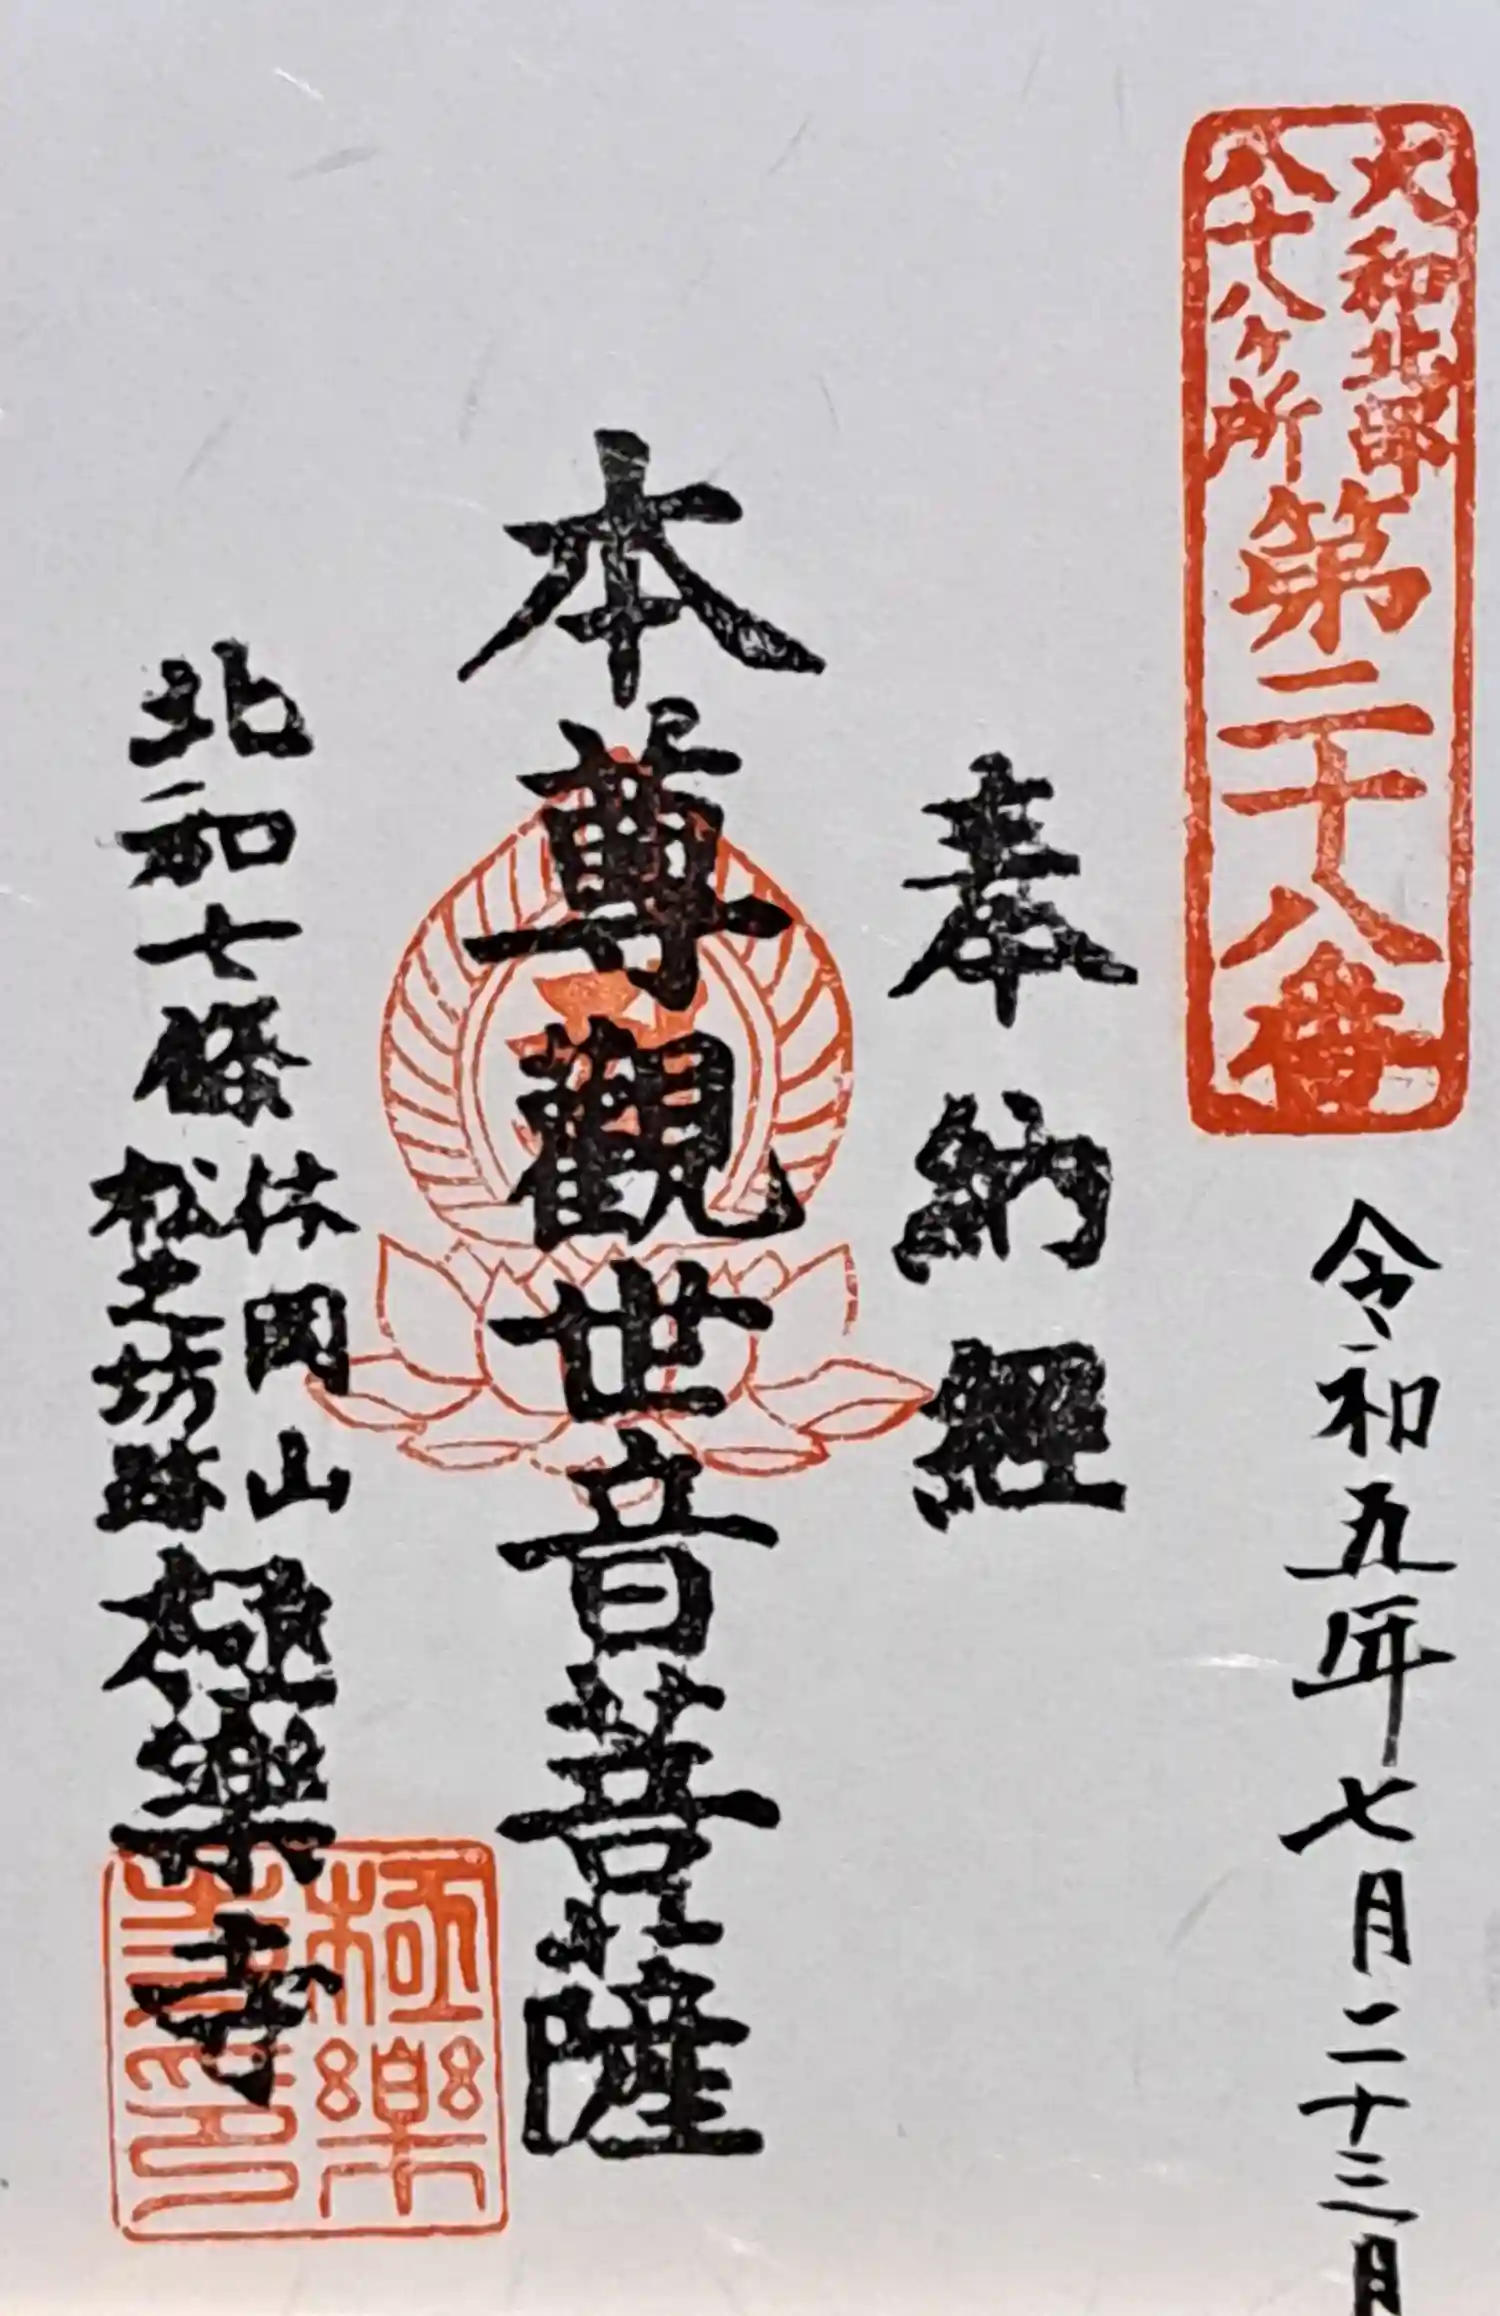 大和北部
八十八ヶ所
第二十八番
令和五年七月二十三日
奉納經
本尊觀世音菩薩
北和七條
休岡山
松之坊跡
極樂寺
極樂
寺印